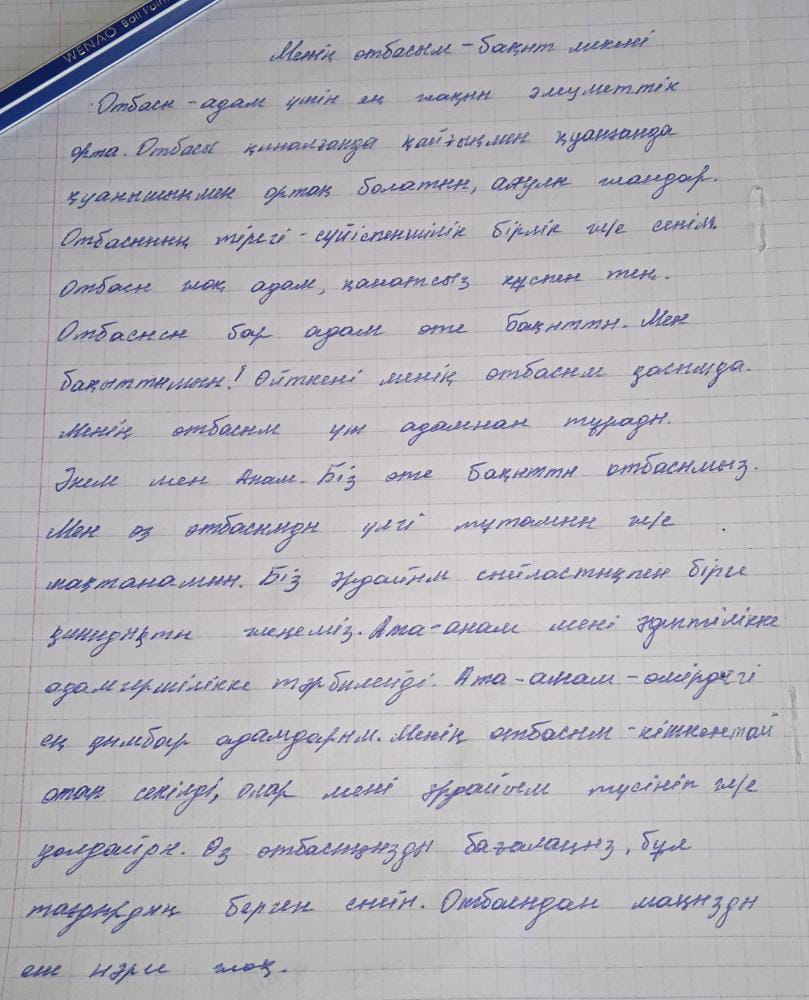 WENAO Ball Poin
Менің отбасым - бақыт мекені
Отбасы - адам үшін ең жақын әлеуметтік
орта. Отбасы қиналғанда қайғыңмен қуанғанда
қуанышыңмен ортақ болатын, асыл жандар.
Отбасының тірегі - сүйіспеншілік бірлік ж/е сенім.
Отбасы жоқ адам, қанатсыз құспен тең.
Отбасысы бар адам өте бақытты. Мен
бақыттымын! Өйткені менің отбасым қасымда.
Менің отбасым үш адамнан тұрады.
Әкем мен Анам. Біз өте бақытты отбасымыз.
Мен өз отбасымды үлгі тұтамын ж/е
мақтанамын. Біз әрдайым сыйластықпен бірге
қиындықты жеңеміз. Ата-анам мені әдептілікке
адамгершілікке тәрбиелейді. Ата-анам - өмірдегі
ең қымбат адамдарым. Менің отбасым - кішкентай
отан секілді, олар мені әрдайым түсініп ж/е
қолдайды. Өз отбасыңызды бағалаңыз, бұл
тағдырдың берген сыйы. Отбасыдан маңызды
еш нәрсе жоқ.